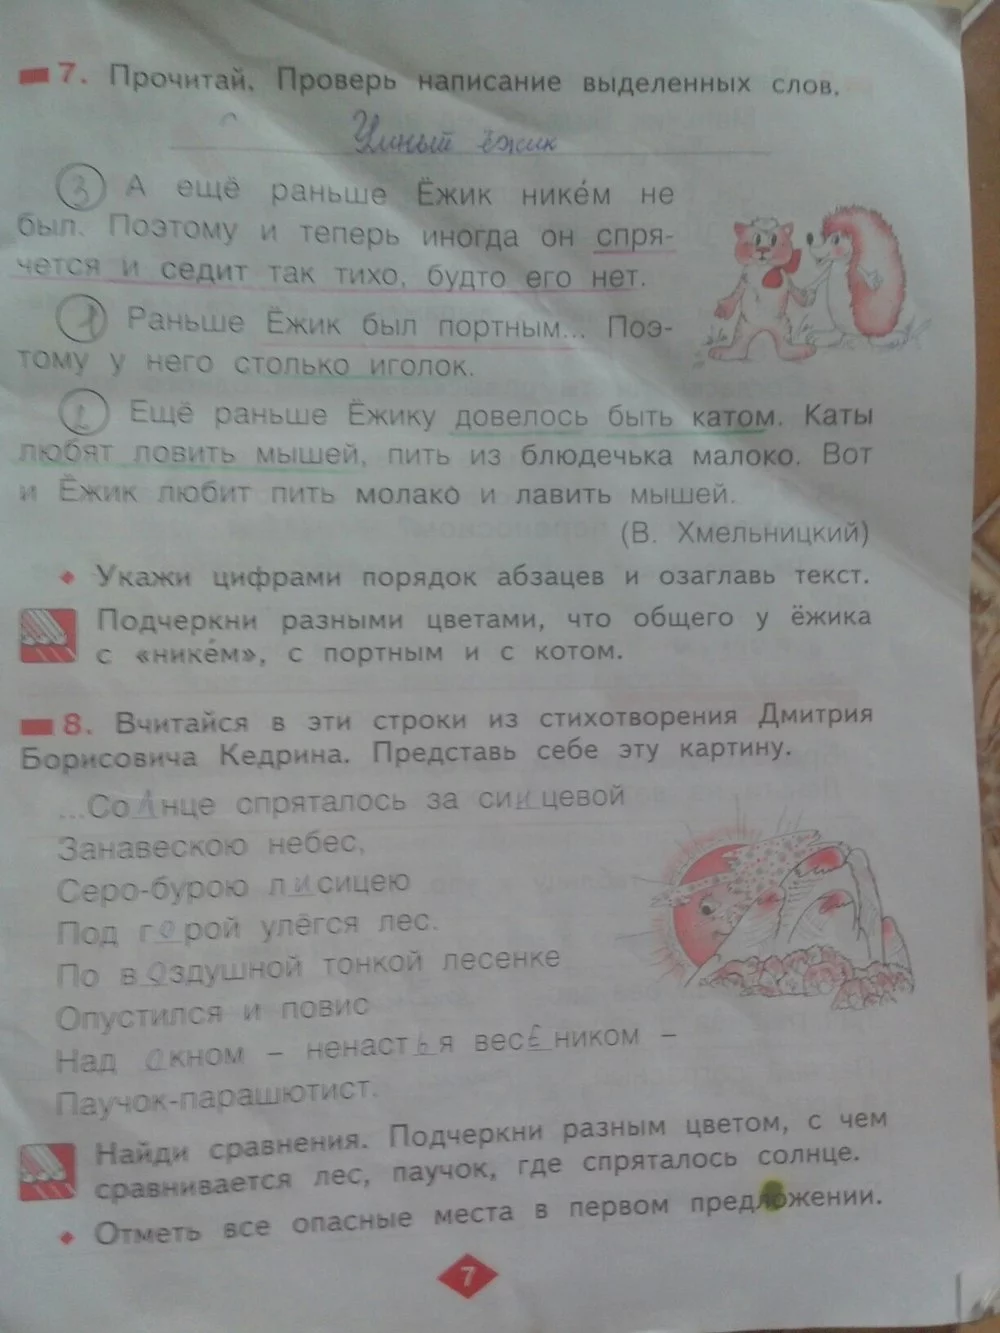 7. Прочитай. Проверь написание выделенных слов.
Умный ёжик
3 А ещё раньше Ёжик нике́м не
был. Поэтому и теперь иногда он спря-
чется и седит так тихо, будто его нет.
1 Раньше Ёжик был портным... Поэ-
тому у него столько иголок.
2 Ещё раньше Ёжику довелось быть катом. Каты
любят ловить мышей, пить из блюдечька малоко. Вот
и Ёжик любит пить молако и лавить мышей.
(В. Хмельницкий)
• Укажи цифрами порядок абзацев и озаглавь текст.
Подчеркни разными цветами, что общего у ёжика
с «нике́м», с портным и с котом.
8. Вчитайся в эти строки из стихотворения Дмитрия
Борисовича Кедрина. Представь себе эту картину.
...Солнце спряталось за синцевой
Занавескою небес,
Серо-бурою лисицею
Под горой улёгся лес.
По воздушной тонкой лесенке
Опустился и повис
Над окном – ненастья весеником –
Паучок-парашютист.
Найди сравнения. Подчеркни разным цветом, с чем
сравнивается лес, паучок, где спряталось солнце.
• Отметь все опасные места в первом предложении.
7